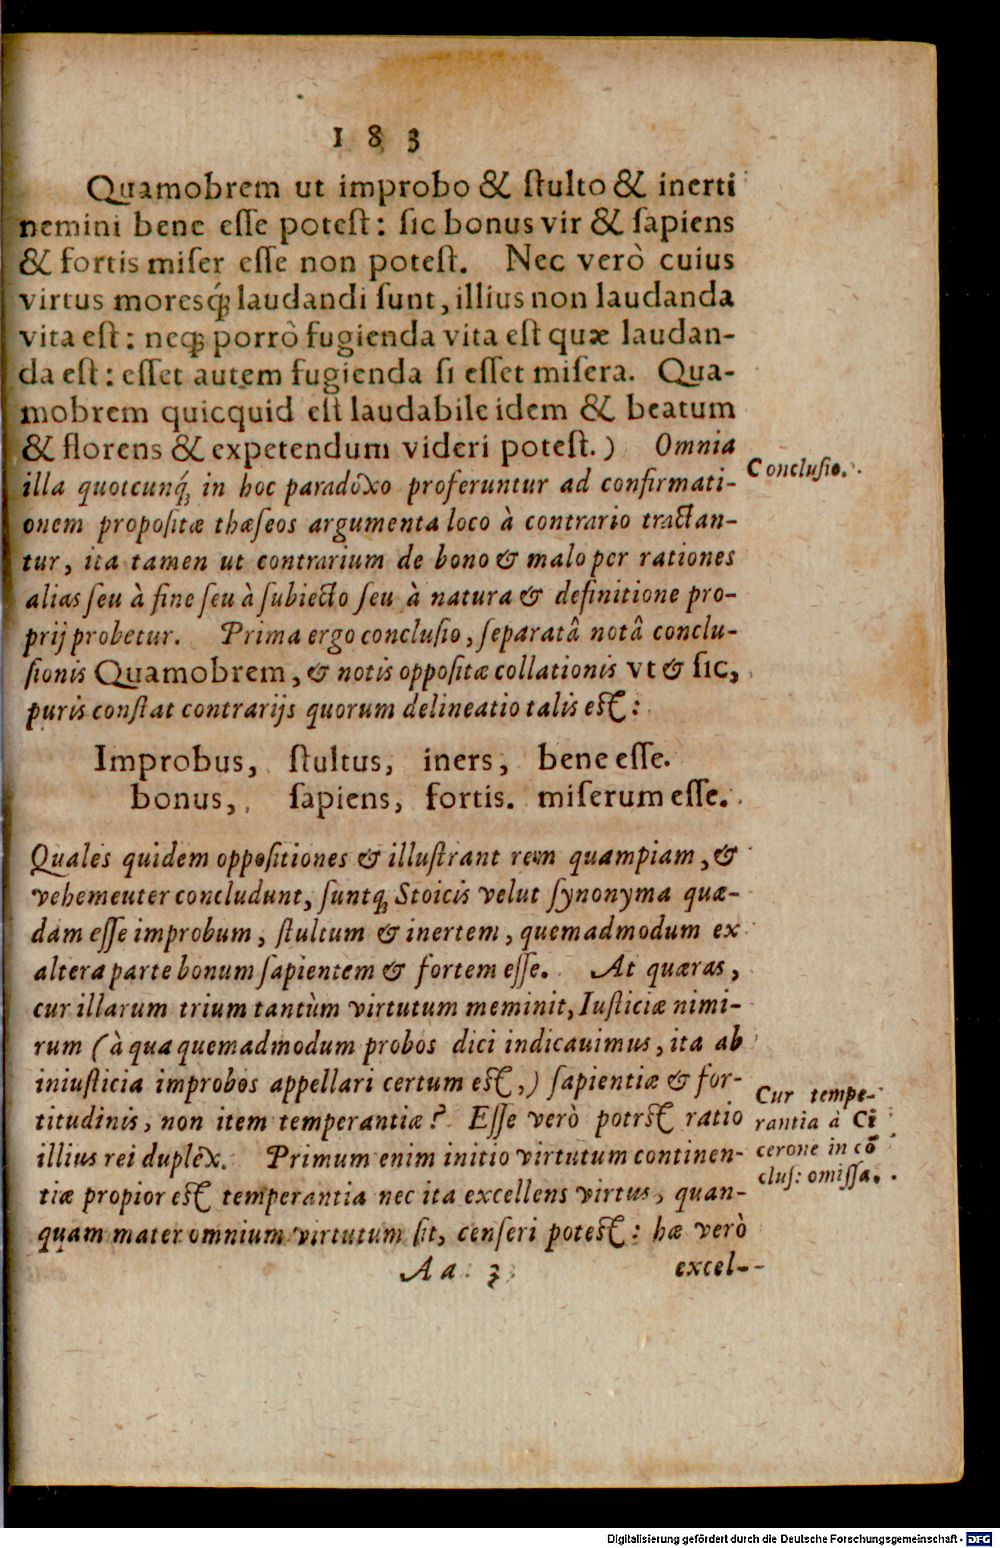 183
Quamobrem ut improbo & ſtulto & inerti
nemini bene eſſe poteſt: ſic bonus vir & ſapiens
& fortis miſer eſſe non poteſt. Nec verò cuius
virtus moresq́; laudandi ſunt, illius non laudanda
vita eſt: neq; porrò fugienda vita eſt quæ laudan-
da eſt: eſſet autem fugienda ſi eſſet miſera. Qua-
mobrem quicquid eſt laudabile idem & beatum
& florens & expetendum videri poteſt.) Omnia
Concluſio.
illa quotcunq́; in hoc paradoxo proferuntur ad confirmati-
onem propoſitæ thæſeos argumenta loco à contrario tractan-
tur, ita tamen ut contrarium de bono & malo per rationes
alias ſeu à fine ſeu à ſubiecto ſeu à natura & definitione pro-
prij probetur. Prima ergo concluſio, ſeparatâ notâ conclu-
ſionis Quamobrem, & notis oppoſitæ collationis vt & ſic,
puris conſtat contrarijs quorum delineatio talis eſt:
Improbus, ſtultus, iners, bene eſſe.
bonus, ſapiens, fortis. miſerum eſſe.
Quales quidem oppoſitiones & illuſtrant rem quampiam, &
vehemeuter concludunt, ſuntq; Stoicis velut ſynonyma quæ-
dam eſſe improbum, ſtultum & inertem, quemadmodum ex
altera parte bonum ſapientem & fortem eſſe. At quæras,
cur illarum trium tantùm virtutum meminit, Iuſticiæ nimi-
rum (à qua quemadmodum probos dici indicauimus, ita ab
iniuſticia improbos appellari certum eſt,) ſapientiæ & for-
titudinis, non item temperantiæ? Eſſe verò potrſt ratio
illius rei duplex. Primum enim initio virtutum continen-
tiæ propior eſt temperantia nec ita excellens virtus, quan-
quam mater omnium virtutum ſit, cenſeri poteſt: hæ verò
Cur tempe-
rantia à Ci
cerone in cõ
cluſ: omiſſa.
Aa 3
excel-
Digitalisierung gefördert durch die Deutsche Forschungsgemeinschaft - DFG